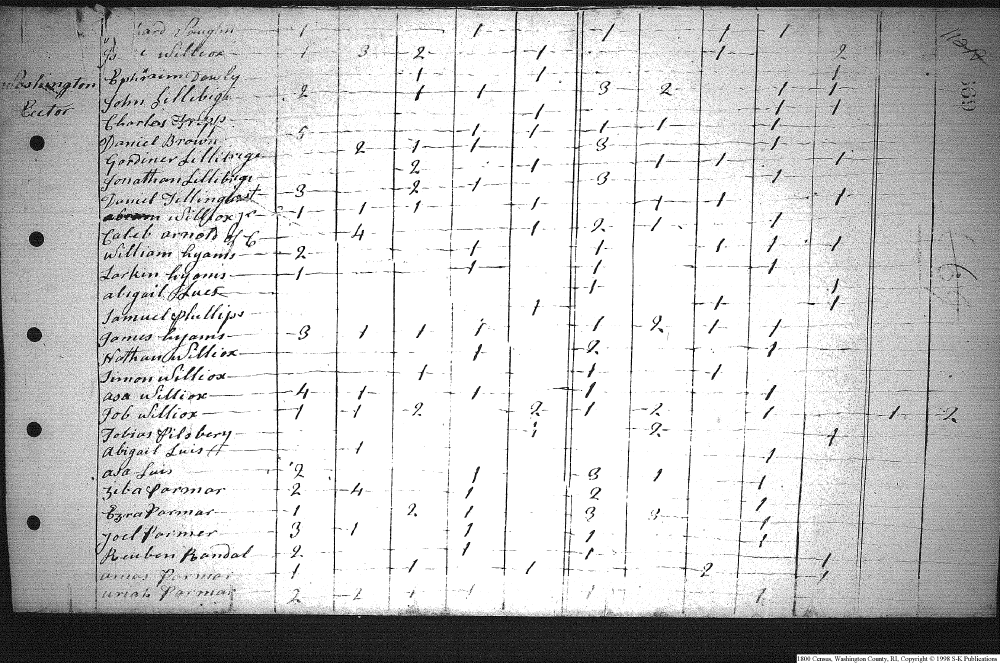 1 1 1 1 1
Willcox 1 3 2 1 1 2
Washington Ephraim Dawly 1 1 1
John Lillibige 2 1 1 3 2 1 1
Exeter Charles Tripp 1 1 1
Daniel Brown 5 1 1 1 1 1
Gardiner Lillibige 2 1 1 3 1
Jonathan Lillibige 2 1 1 1 1
Daniel Tillinghast 3 2 1 3 1
abram Willcox Jr 1 1 1 1 1 1 1
Caleb arnold of C 4 1 2 1 1
William Hyams 2 1 1 1 1 1
Larkin Hyams 1 1 1 1
abigail 1 1
Samuel Phillips 1 1 1
James Hyams 3 1 1 1 1 2 1 1
Nathan Willcox 1 2 1
Simon Willcox 1 1 1
asa Willcox 4 1 1 1 1
Job Willcox 1 1 2 2 1 2 1 1 2
Tobias Pilsbery 1 2 1
Abigail Luis 1 1
asa Luis 2 1 3 1 1
Parmar 2 4 1 2 1
Ezra Parmar 1 2 1 3 3 1
Joel Parmer 3 1 1 1 1
Reuben Randal 2 1 1 1
amos Parmar 1 1 1 2 1
uriah Parmar 2 1 1 1 1
1800 Census, Washington County, RI, Copyright © 1998 S-K Publications